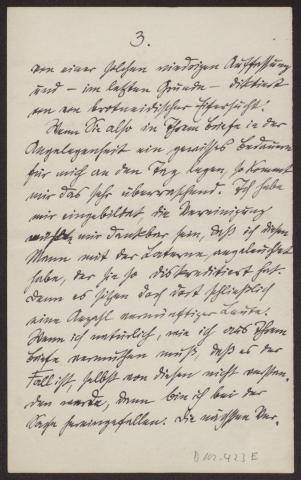 3.
von einer solchen niedrigen Auffassung
und – im letzten Grunde – diktiert
von brotneidischer Eifersucht!
Wenn Sie also in Ihrem Briefe in der
Angelegenheit ein gewisses Bedauern
für mich an den Tag legen, so kommt
mir das sehr überraschend. Ich habe
mir eingebildet, die Vereinigung
mir dankbar sein, daß ich diesen
Mann mit der Laterne angeleuchtet
habe, der sie so diskreditiert hat.
Denn es sitzen doch dort schließlich
eine Anzahl vernünftiger Leute.
Wenn ich natürlich, wie ich aus Ihrem
Briefe vermuthen muß, daß es der
Fall ist, selbst von diesen nicht verstan-
den werde, dann bin ich bei der
Sache hereingefallen. Die nächsten Ver-